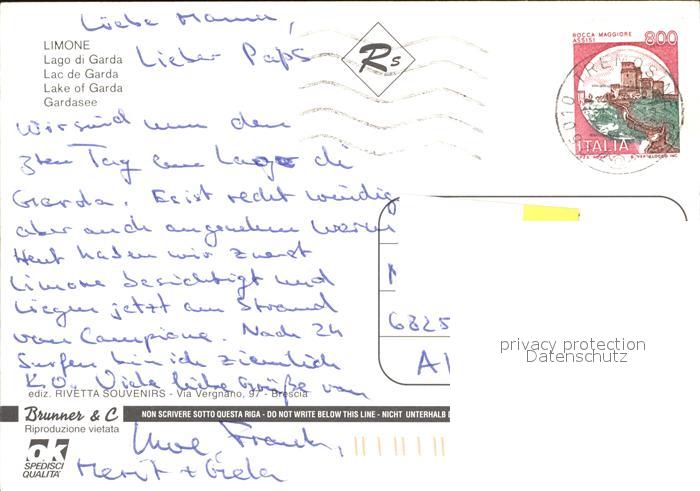 Liebe Mama,
Lieber Paps
LIMONE
Lago di Garda
Lac de Garda
Lake of Garda
Gardasee
Rs
ROCCA MAGGIORE
ASSISI
800
TREMOSINE
ITALIA
Wir sind nun den
3ten Tag am Lago di
Garda. Es ist recht windig
aber auch angenehm warm
Heut haben wir zuerst
Limone besichtigt und
liegen jetzt am Strand
von Campione. Nach 2h
Surfen bin ich ziemlich
K.O. Viele liebe Grüße von
6825
ediz. RIVETTA SOUVENIRS - Via Vergnano, 97 - Brescia
Brunner & C
Riproduzione vietata
NON SCRIVERE SOTTO QUESTA RIGA - DO NOT WRITE BELOW THIS LINE - NICHT UNTERHALB
Uwe, Frank,
ok
SPEDISCI
QUALITA'
Merit + Gela
privacy protection
Datenschutz